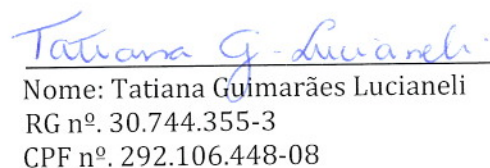 Tatiana G. Lucianeli.
Nome: Tatiana Guimarães Lucianeli
RG nº. 30.744.355-3
CPF nº. 292.106.448-08